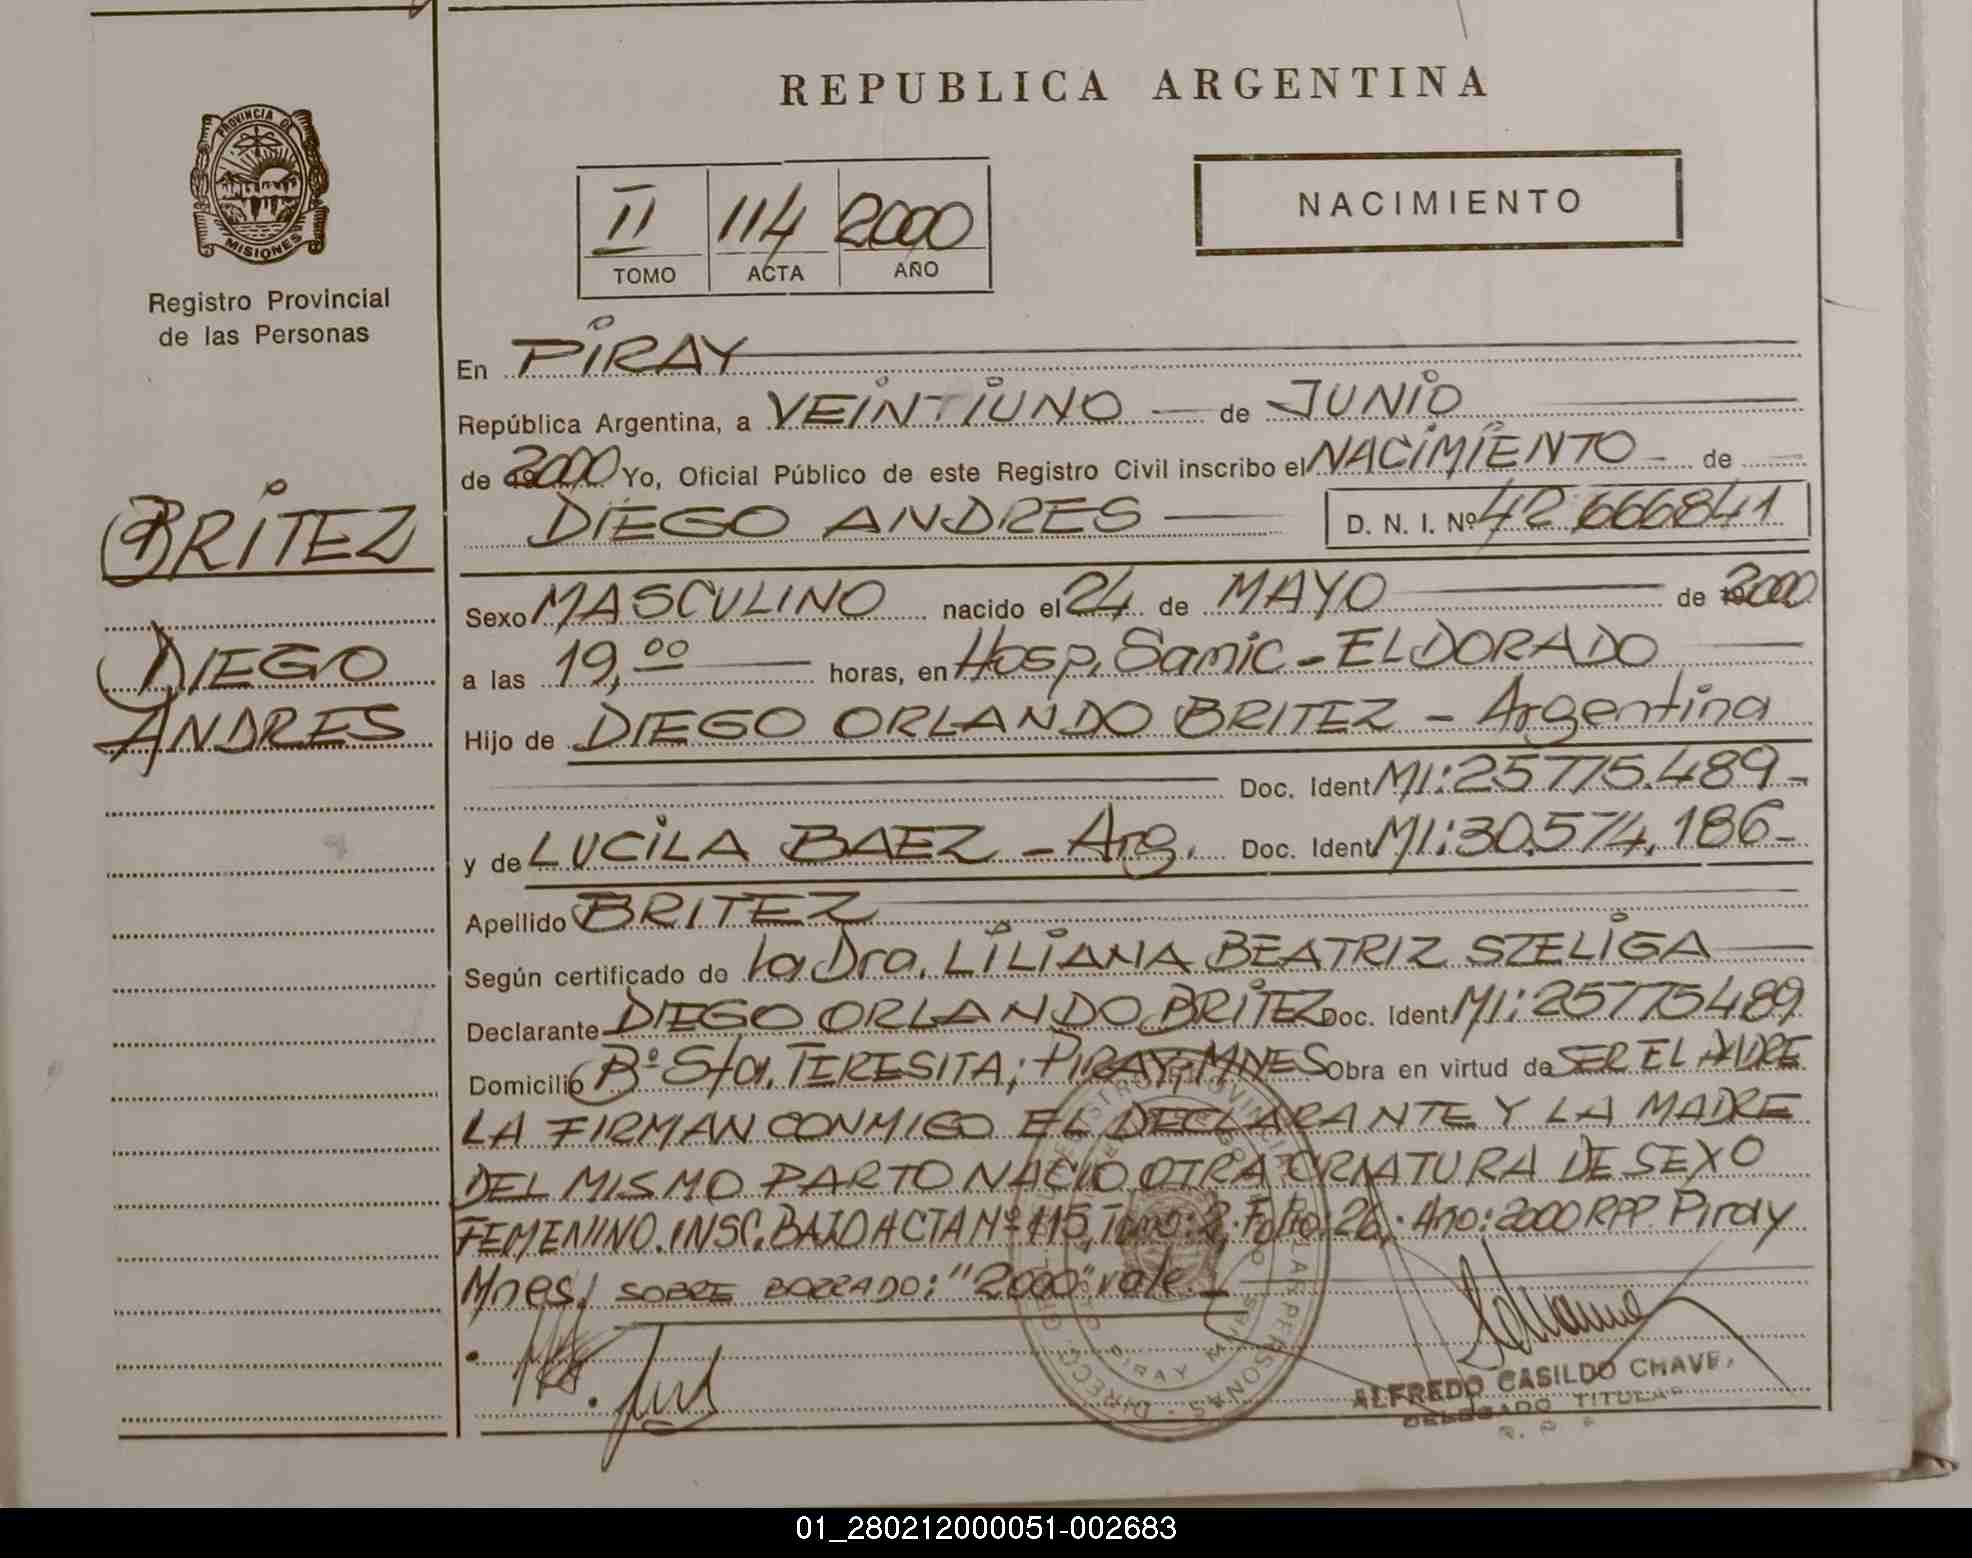 REPUBLICA ARGENTINA
PROVINCIA DE
MISIONES
Registro Provincial
de las Personas
II 114 2000
TOMO ACTA AÑO
NACIMIENTO
BRITEZ
DIEGO
ANDRES
En PIRAY
República Argentina, a VEINTIUNO de JUNIO
de 2000 Yo, Oficial Público de este Registro Civil inscribo el NACIMIENTO de
DIEGO ANDRES D. N. I. Nº 42 666841
Sexo MASCULINO nacido el 24 de MAYO de 2000
a las 19,00 horas, en Hosp. Samic - ELDORADO
Hijo de DIEGO ORLANDO BRITEZ - Argentina
Doc. Ident MI: 25775.489-
y de LUCILA BAEZ - Arg. Doc. Ident MI: 30.574.186-
Apellido BRITEZ
Según certificado de la Dra. LILIANA BEATRIZ SZELIGA
Declarante DIEGO ORLANDO BRITEZ Doc. Ident MI: 25775489
Domicilio Bº Sta. TERESITA; PIRAY; MNES Obra en virtud de SER EL PADRE
LA FIRMAN CONMIGO EL DECLARANTE Y LA MADRE
DEL MISMO PARTO NACIO OTRA CRIATURA DE SEXO
FEMENINO. INSC. BAJO ACTA Nº 115, Tomo: 2, Folio: 26, Año: 2000 RPP. Piray
Mnes. SOBRE BORRADO: "2000" vale.
ALFREDO CASILDO CHAVE
DELEGADO TITULAR
01_280212000051-002683